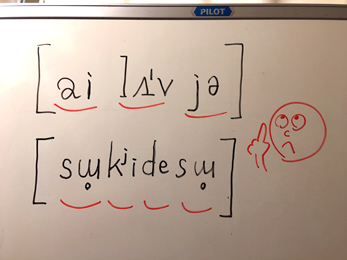 PILOT
[ai lʌ́v jə]
[sɯ̥kʲidesɯ̥]